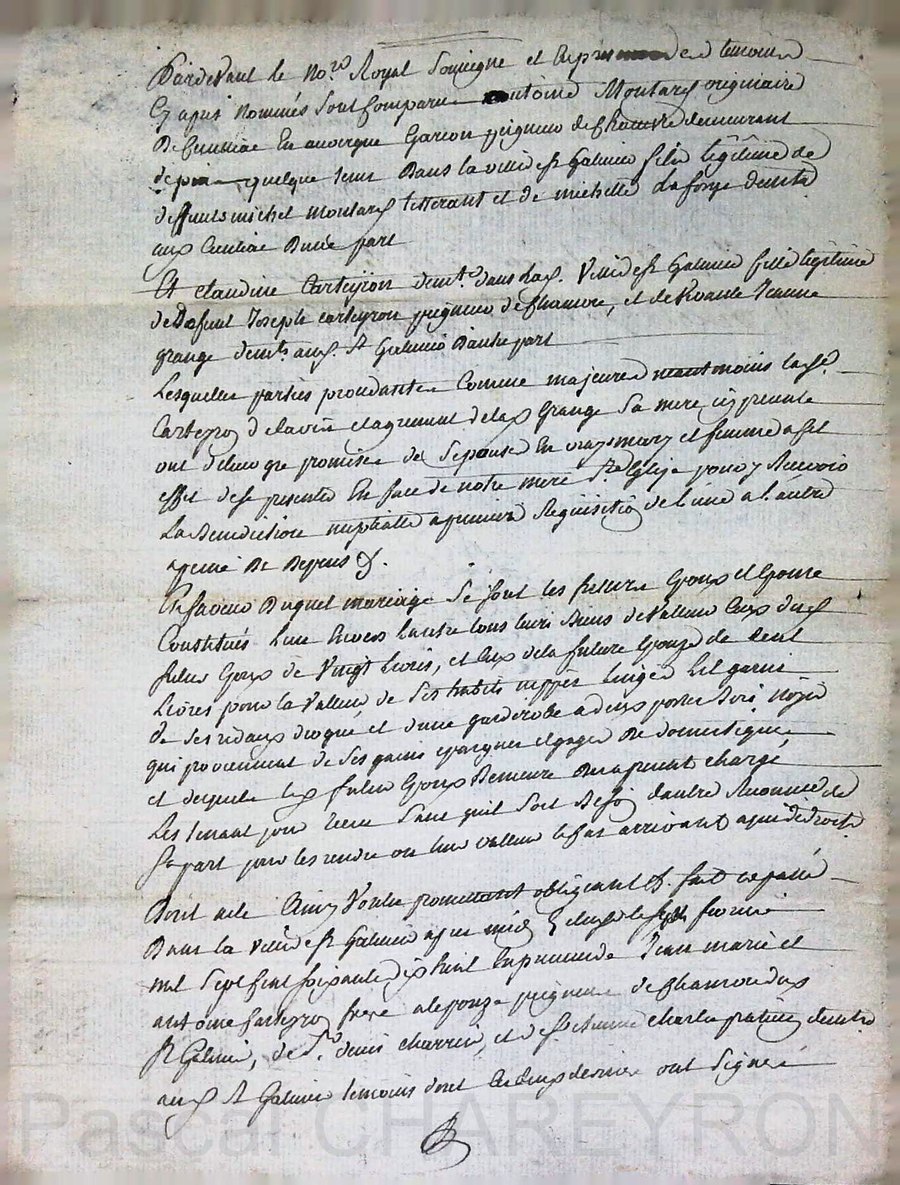 Pardevant le No.re Royal Soussigné et En présence des temoins
Cy apres Nommés Sont Comparu antoine Montary originaire
De Cunliac En auvergne Garcon peigneur de Chanvre demeurant
depuis quelque tems Dans la ville de St Galmier fils légitime de
deffunts michel montary et de michelle La forge demts
aux Cunliac Dune part
Et Claudine Carteyron demte. dans lad. Ville de St Galmier fille légitime
de Defunt Joseph carteyron peigneur de Chanvre, et de Jeanne
grange demte aud. St Galmier Dautre part
Lesquelles parties procedantes Comme majeures neantmoins lad.
Carteyron de lavis et agrement de lad Grange Sa mere icy presente
ont promises de Sepouser En vrays mary et femme a cet
effet de se presenter En face de notre mere Ste Eglise pour y Recevoir
La Benediction nuptialle a premiere Requisition de l'une a l'autre
a peine De Depens &.
En faveur Duquel mariage Se sont les futurs Epoux et Epouse
Constitués L'un Envers L'autre tous leurs Biens de Valleur Ceux dud
futur Epoux de Vingt Livres, et Ceux de la future Epouse de Cent
Livres pour la Valleur de Ses habits nippes Linges Lit garni
de Ses rideaux et d'une garderobe a deux portes Bois Noyer
qui proviennent de Ses gains epargnes et gages De domestique
et desquels led futur Epoux Demeure Des a present chargé
Les tenant pour Reçu Sans quil Soit Besoin dautre Reconnce de
Sa part pour les rendre ou leur valleur le Cas arrivant a qui de droit
Dont acte Ainsy Voulu promettant obligeant &. fait et passé
Dans la ville de St Galmier apres midy fevrier
mil Sept Cent Soixante dix huit En presence de Jean marie et
antoine Carteyron frere a lepouze peigneurs de Chanvre dud
St Galmier, de Sr. denis charrin, et de Sr Etienne charles praticien demts
aud St Galmier temoins dont Les deux derniers ont Signé
Pascal CHAREYRON